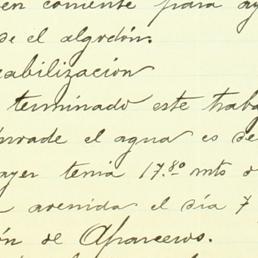 en corriente para ay
de el algodón.
eabilización
terminado este traba
nrade el agua es de
ayer tenia 17.80 mts d
avenida el día 7
ón de Aparceros.